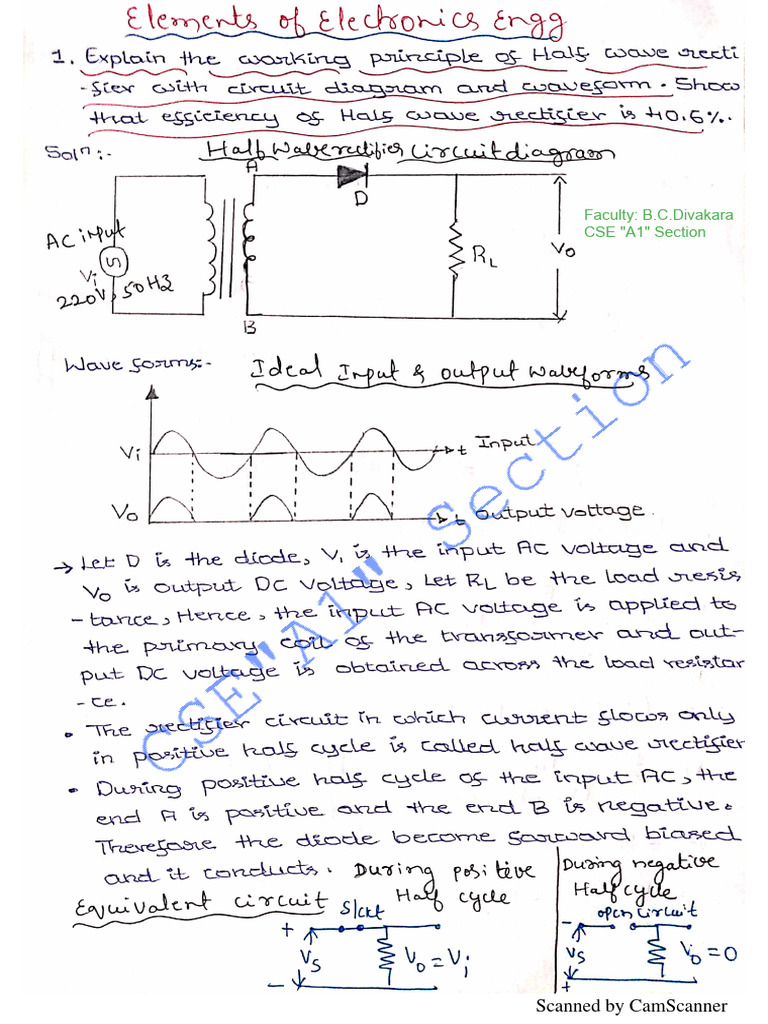 Elements of Electronics Engg
1. Explain the working principle of Half wave recti
-fier with circuit diagram and waveform. Show
that efficiency of Half wave rectifier is 40.6%.
Solⁿ:-
Half Wave rectifier Circuit diagram
A
D
Faculty: B.C.Divakara
CSE "A1" Section
AC input
Vi
220V, 50Hz
RL
Vo
B
Wave forms:-
Ideal Input & output waveforms
Vi
t Input
Vo
t output voltage.
→ Let D is the diode, Vi is the input AC voltage and
Vo is output DC voltage, Let RL be the load resis
-tance, Hence, the input AC voltage is applied to
the primary coil of the transformer and out-
put DC voltage is obtained across the load resistan
-ce.
• The rectifier circuit in which current flows only
in positive half cycle is called half wave rectifier
• During positive half cycle of the input AC, the
end A is positive and the end B is negative.
Therefore the diode become forward biased
and it conducts.
During positive
Half cycle
During negative
Half cycle
Equivalent circuit
S/ckt
open circuit
+
Vs
-
Vo = Vi
-
Vs
+
Vo = 0
CSE "A1" Section
Scanned by CamScanner